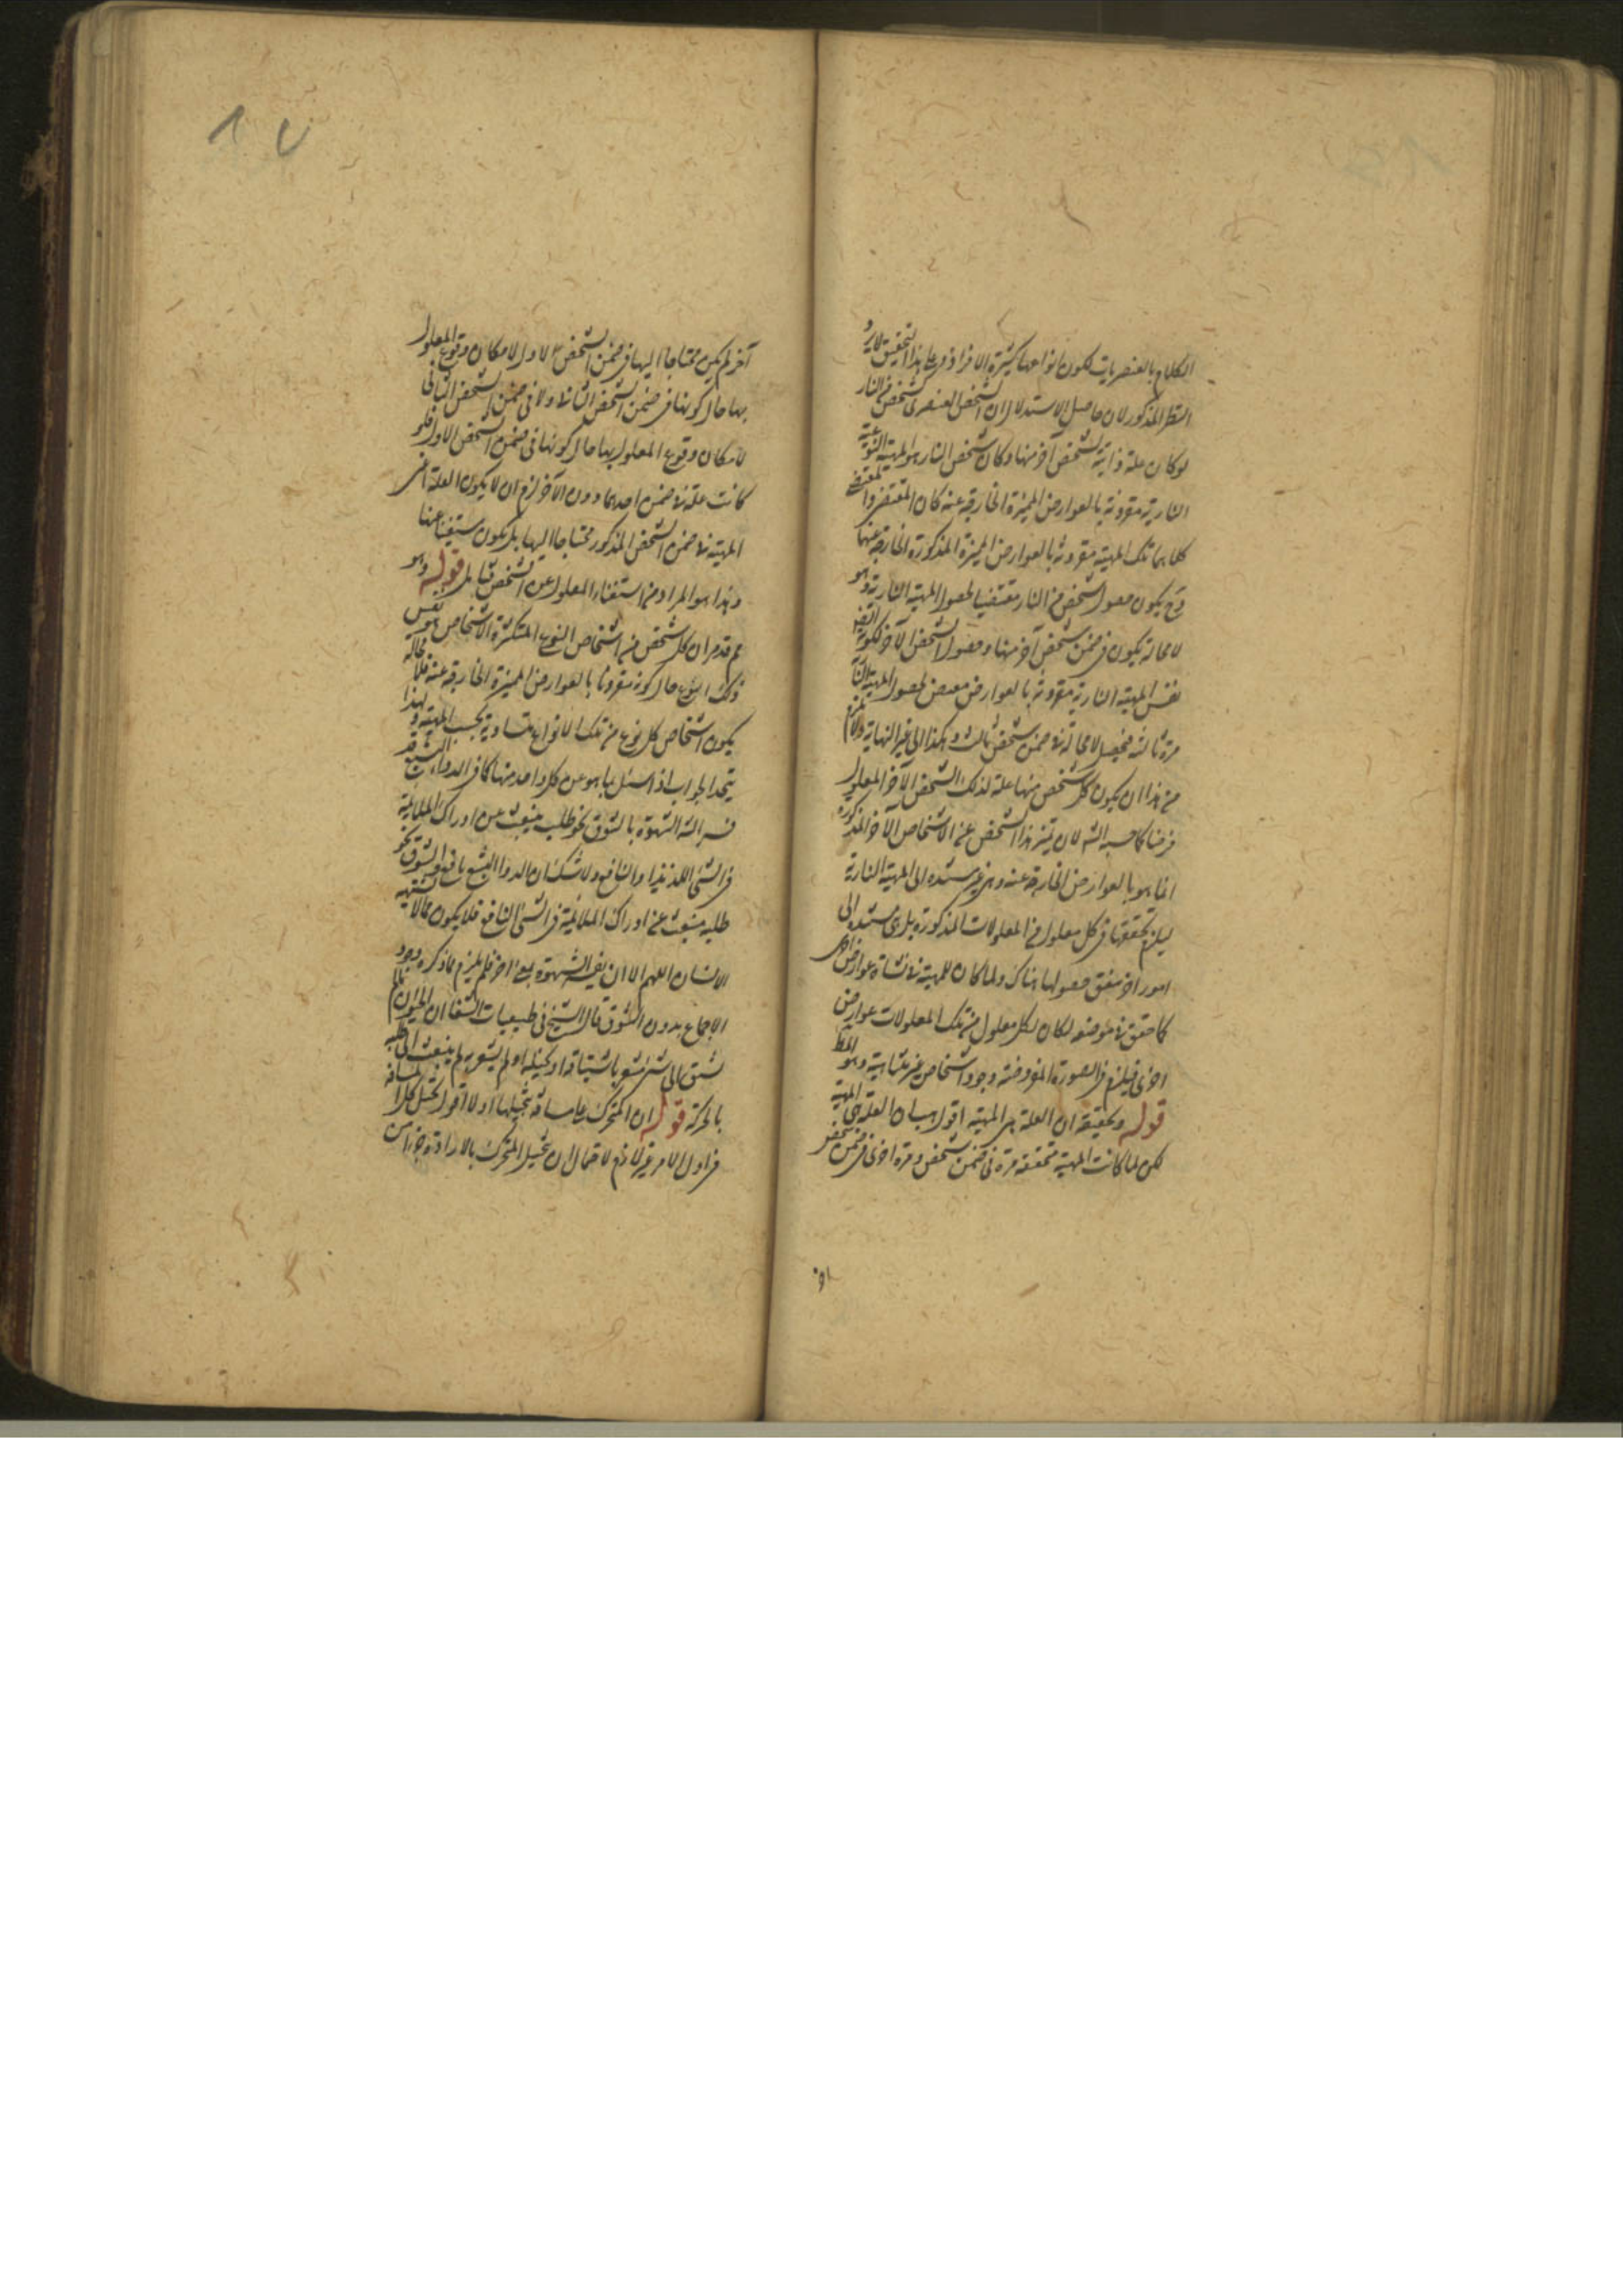 الكلام بالعنصريات لكون انواعها كثيرة الافراد وعلى هذا التحقيق لا يرد
النظر المذكور لان حاصل الاستدلال ان الشخص العنصرى كشخص من النار
لو كان علة ذاتية لشخص آخر منها وكان شخص النار هو المهية النوعية
النارية مقرونة بالعوارض المميزة الخارجة عنه كان المقتضى والمقتضى
كلاهما تلك المهية مقرونة بالعوارض المميزة المذكورة الخارجة عنها
وح يكون حصول شخص من النار مقتضيا لحصول المهية النارية وهو
لا محالة يكون فى ضمن شخص آخر منها وحصول الشخص الآخر لكونه
نفس المهية النارية مقرونة بالعوارض مقتض لحصول المهية النارية
مرة ثالثة فيحصل لا محالة فى ضمن شخص ثالث وهكذا الى غير النهاية ولا يلزم
من هذا ان يكون كل شخص منها علة لذلك الشخص الآخر المعلول
فرضا كما حسبه الش لان تميز هذا الشخص عن الاشخاص الآخر المذكورة
انما هو بالعوارض الخارجة عنه وهى غير مستندة الى المهية النارية
ليلزم تحققها فى كل معلول من المعلولات المذكورة بل هى مستندة الى
امور اخر متفق حصولها هناك ولما كان للمهية فى نشأة عوارض اخرى
كما حقق فى موضعه لكان لكل معلول من تلك المعلولات عوارض
اخرى فيلزم فى الصورة المفروضة وجود اشخاص غير متناهية وهو المط
قوله وتحقيقه ان العلة هى المهية اقول بيان العلة هى المهية
لكن لما كانت المهية متحققة مرة فى ضمن شخص ومرة اخرى فى ضمن شخص
آخر لم يكن محتاجا اليها فى ضمن الشخص الاول لامكان وقوع المعلول
بها حال كونها فى ضمن الشخص الثانى ولا فى ضمن الشخص الثانى
لامكان وقوع المعلول بها حال كونها فى ضمن الشخص الاول فلو
كانت علة فى ضمن احدهما دون الآخر لزم ان لا يكون العلة اعنى
المهية فى ضمن الشخص المذكور محتاجا اليها بل يكون مستغنيا عنها
وهذا هو المراد من استغناء المعلول عن الشخص فتأمل قوله وهو
قدمر ان كل شخص من اشخاص النوع المتكثرة الاشخاص هو نفس
ذلك النوع حال كونه مقرونا بالعوارض المميزة الخارجة عنه فلا محالة
يكون اشخاص كل نوع من تلك الانواع متساوية بحسب المهية ولهذا
يتحد الجواب اذا سئل بما هو عن كل واحد منها كما فى الدواء البشع قد
فسر الش الشهوة بالشوق نحو طلب ينبعث من ادراك الملائمة
فى الشئ اللذيذ او النافع ولا شك ان الدواء البشع نافع والشوق نحو
طلبه منبعث عن ادراك الملائمة فى الشئ النافع فلا يكون مما لا يشتهيه
الانسان اللهم الا ان يفسر الشهوة بمعنى آخر فلم يلزم مما ذكره وجود
الاجماع بدون الشوق قال الشيخ فى طبيعيات الشفا ان الحيوان ما لم
يشتق الى شئ يشعر باشتياقه او تخيله او لم يشعر به لم ينبعث الى طلبه
بالحركة قوله ان المتحرك على مسافة يتخيلها اولا اقول تخيل كل المسافة
فى اول الامر غير لازم لاحتمال ان يتخيل المتحرك بالارادة جزءا من